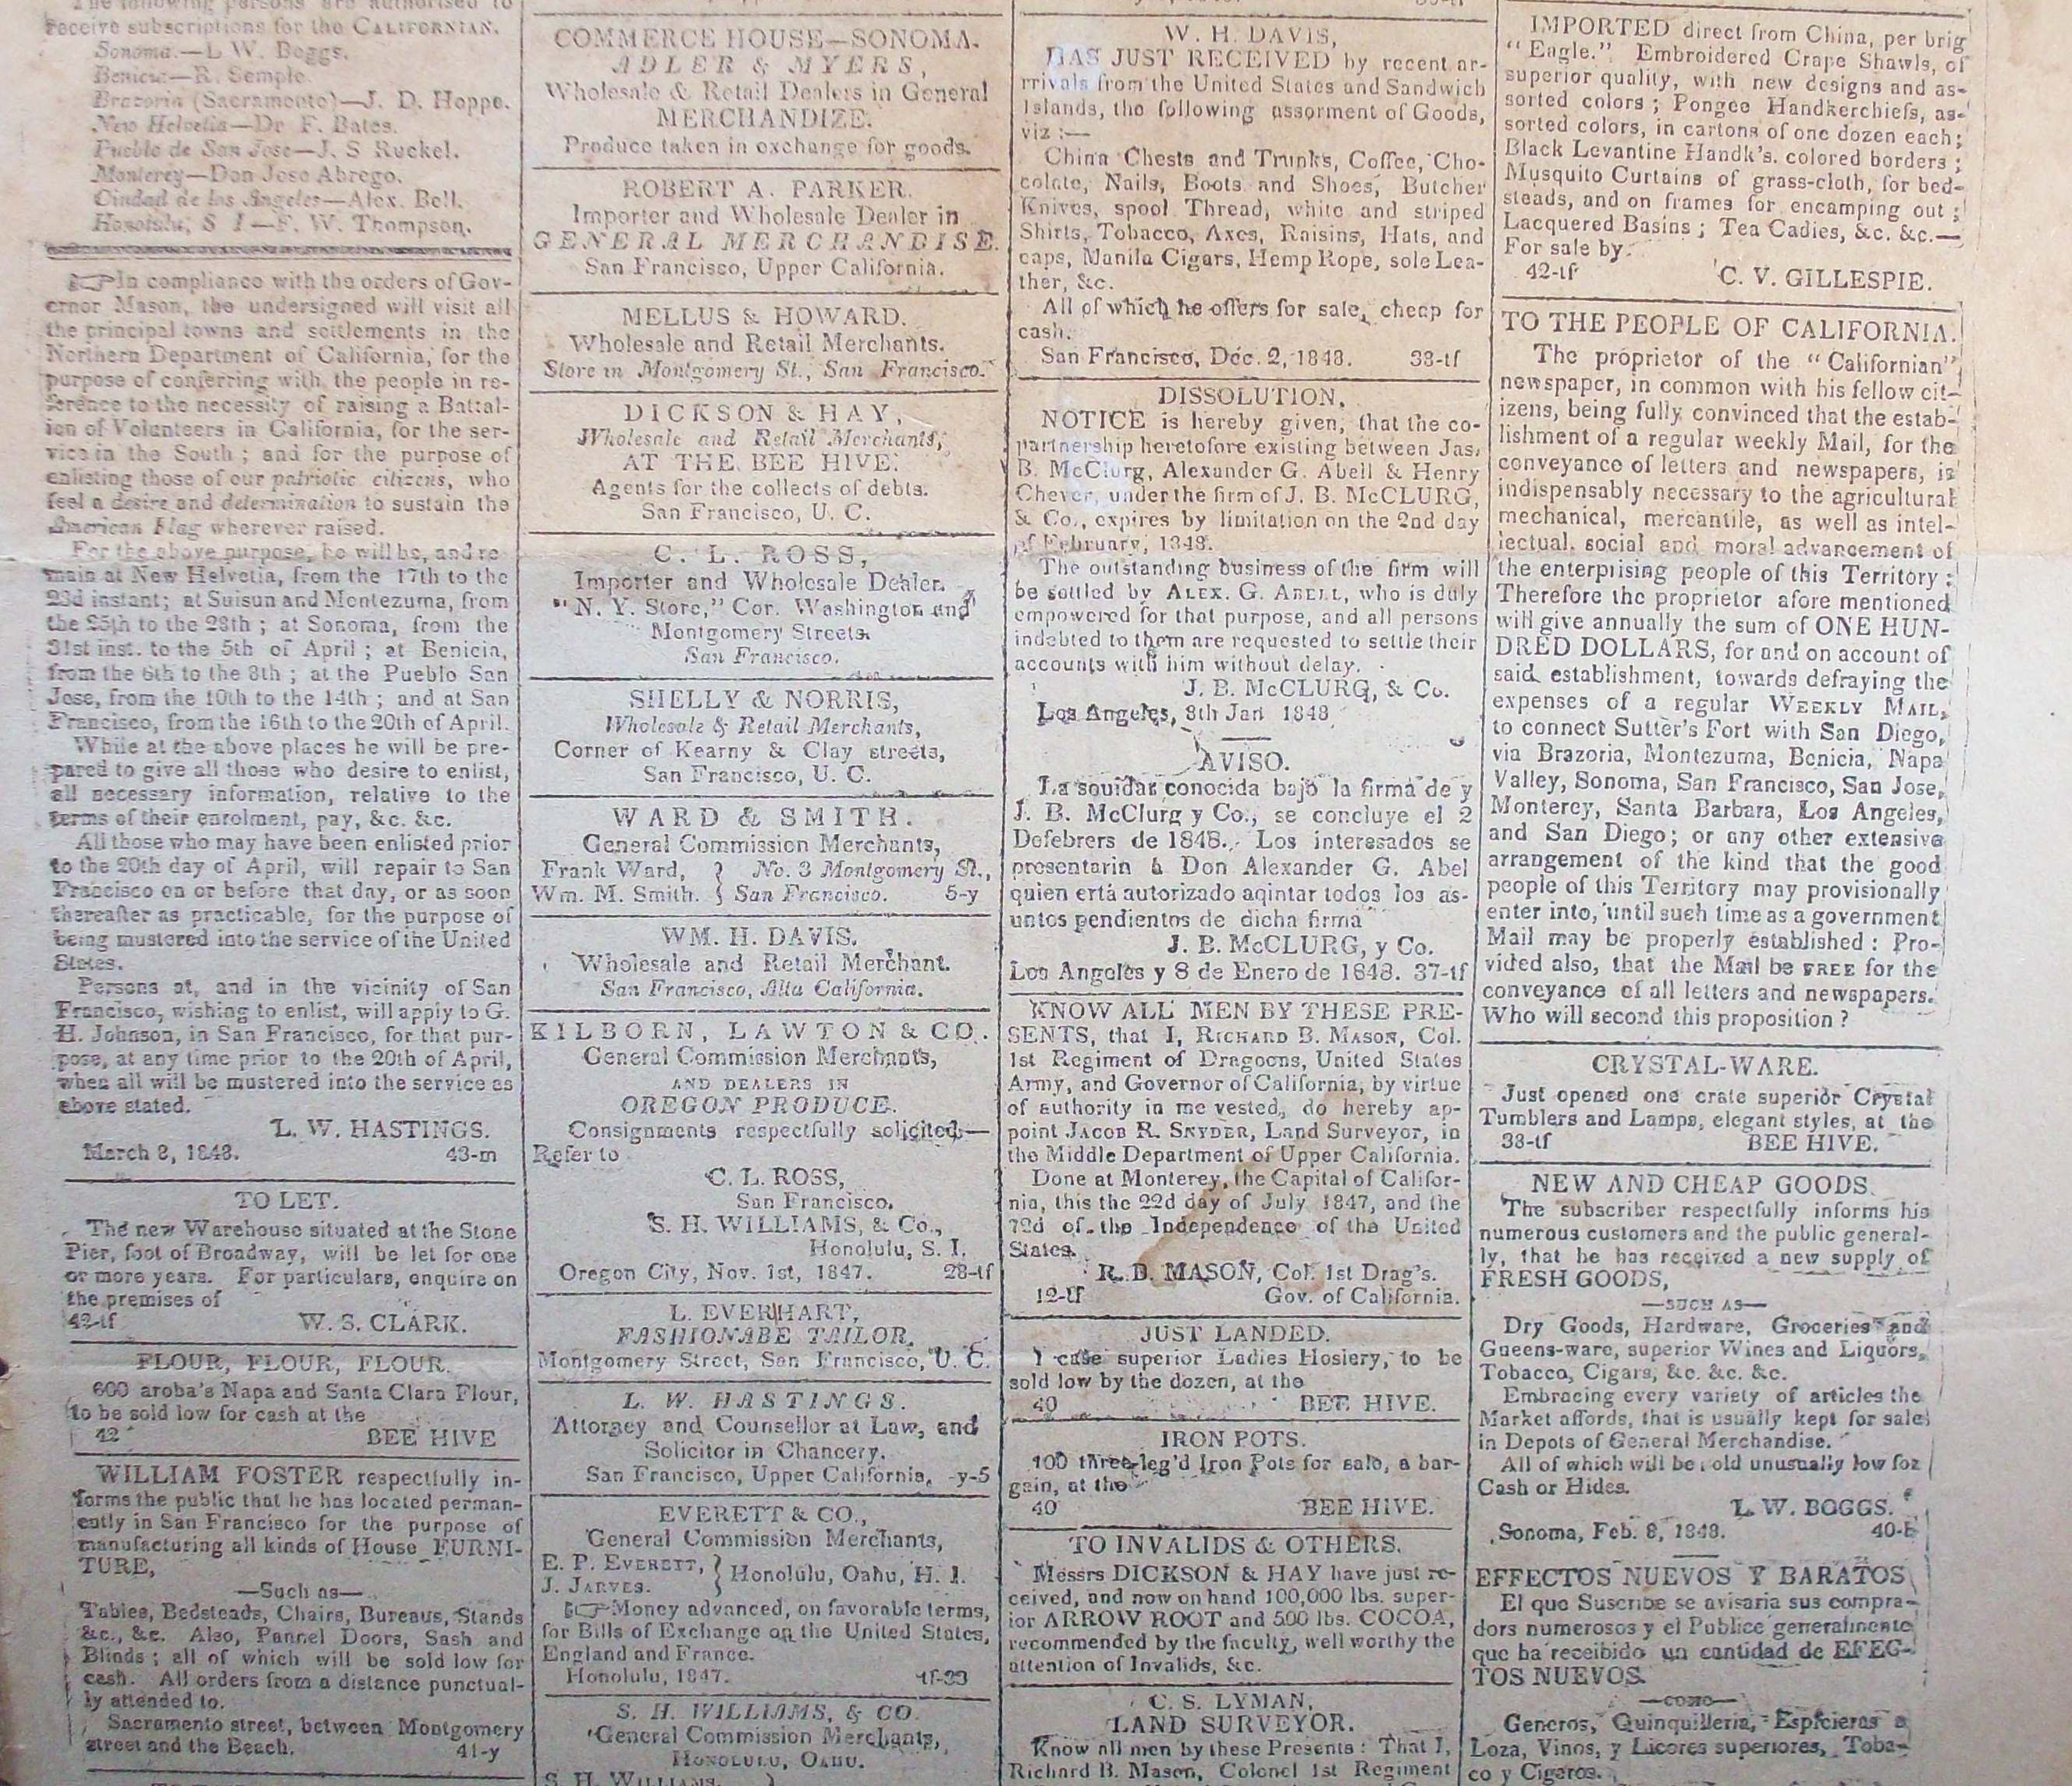 The following persons are authorised to
receive subscriptions for the CALIFORNIAN.
Sonoma.—L W. Boggs.
Benicia—R. Semple.
Brazoria (Sacramento)—J. D. Hoppe.
New Helvetia—Dr F. Bates.
Pueblo de San Jose—J. S Ruckel.
Monterey—Don Jose Abrego.
Ciudad de los Angeles—Alex. Bell.
Honolulu, S I—F. W. Thompson.
☞In compliance with the orders of Gov-
ernor Mason, the undersigned will visit all
the principal towns and settlements in the
Northern Department of California, for the
purpose of conferring with the people in re-
ference to the necessity of raising a Battal-
ion of Volunteers in California, for the ser-
vice in the South ; and for the purpose of
enlisting those of our patriotic citizens, who
feel a desire and determination to sustain the
American Flag wherever raised.
For the above purpose, he will be, and re-
main at New Helvetia, from the 17th to the
23d instant; at Suisun and Montezuma, from
the 25th to the 28th ; at Sonoma, from the
31st inst. to the 5th of April ; at Benicia,
from the 6th to the 8th ; at the Pueblo San
Jose, from the 10th to the 14th ; and at San
Francisco, from the 16th to the 20th of April.
While at the above places he will be pre-
pared to give all those who desire to enlist,
all necessary information, relative to the
terms of their enrolment, pay, &c. &c.
All those who may have been enlisted prior
to the 20th day of April, will repair to San
Francisco on or before that day, or as soon
thereafter as practicable, for the purpose of
being mustered into the service of the United
States.
Persons at, and in the vicinity of San
Francisco, wishing to enlist, will apply to G.
H. Johnson, in San Francisco, for that pur-
pose, at any time prior to the 20th of April,
when all will be mustered into the service as
above stated.
L. W. HASTINGS.
March 8, 1848. 43-m
TO LET.
The new Warehouse situated at the Stone
Pier, foot of Broadway, will be let for one
or more years. For particulars, enquire on
the premises of
42-tf W. S. CLARK.
FLOUR, FLOUR, FLOUR.
600 aroba's Napa and Santa Clara Flour,
to be sold low for cash at the
42 BEE HIVE
WILLIAM FOSTER respectfully in-
forms the public that he has located perman-
ently in San Francisco for the purpose of
manufacturing all kinds of House FURNI-
TURE,
—Such as—
Tables, Bedsteads, Chairs, Bureaus, Stands
&c., &c. Also, Pannel Doors, Sash and
Blinds ; all of which will be sold low for
cash. All orders from a distance punctual-
ly attended to.
Sacramento street, between Montgomery
street and the Beach. 41-y
COMMERCE HOUSE—SONOMA.
ADLER & MYERS,
Wholesale & Retail Dealers in General
MERCHANDIZE.
Produce taken in exchange for goods.
ROBERT A. PARKER.
Importer and Wholesale Dealer in
GENERAL MERCHANDISE.
San Francisco, Upper California.
MELLUS & HOWARD.
Wholesale and Retail Merchants.
Store in Montgomery St., San Francisco.
DICKSON & HAY,
Wholesale and Retail Merchants,
AT THE BEE HIVE.
Agents for the collects of debts.
San Francisco, U. C.
C. L. ROSS,
Importer and Wholesale Dealer.
"N. Y. Store," Cor. Washington and
Montgomery Streets
San Francisco.
SHELLY & NORRIS,
Wholesale & Retail Merchants,
Corner of Kearny & Clay streets,
San Francisco, U. C.
WARD & SMITH.
General Commission Merchants,
Frank Ward, } No. 3 Montgomery St.,
Wm. M. Smith. } San Francisco. 5-y
WM. H. DAVIS.
Wholesale and Retail Merchant.
San Francisco, Alta California.
KILBORN, LAWTON & CO.
General Commission Merchants,
AND DEALERS IN
OREGON PRODUCE.
Consignments respectfully solicited.—
Refer to
C. L. ROSS,
San Francisco.
S. H. WILLIAMS, & Co.,
Honolulu, S. I.
Oregon City, Nov. 1st, 1847. 28-tf
L. EVERHART,
FASHIONABE TAILOR.
Montgomery Street, San Francisco, U. C.
L. W. HASTINGS.
Attorney and Counsellor at Law, and
Solicitor in Chancery.
San Francisco, Upper California. -y-5
EVERETT & CO.,
General Commission Merchants,
E. P. EVERETT, } Honolulu, Oahu, H. I.
J. JARVES.
☞Money advanced, on favorable terms,
for Bills of Exchange on the United States,
England and France.
Honolulu, 1847. tf-33
S. H. WILLIAMS, & CO.
General Commission Merchants,
HONOLULU, OAHU.
S. H. WILLIAMS. }
W. H. DAVIS,
HAS JUST RECEIVED by recent ar-
rrivals from the United States and Sandwich
Islands, the following assorment of Goods,
viz :—
China Chests and Trunks, Coffee, Cho-
colate, Nails, Boots and Shoes, Butcher
Knives, spool Thread, white and striped
Shirts, Tobacco, Axes, Raisins, Hats, and
caps, Manila Cigars, Hemp Rope, sole Lea-
ther, &c.
All of which he offers for sale, cheap for
cash.
San Francisco, Dec. 2, 1848. 33-tf
DISSOLUTION.
NOTICE is hereby given, that the co-
partnership heretofore existing between Jas.
B. McClurg, Alexander G. Abell & Henry
Chever, under the firm of J. B. McCLURG,
& Co., expires by limitation on the 2nd day
of February, 1848.
The outstanding business of the firm will
be settled by ALEX. G. ABELL, who is duly
empowered for that purpose, and all persons
indebted to them are requested to settle their
accounts with him without delay.
J. B. McCLURG, & Co.
Los Angeles, 8th Jan 1848
AVISO.
La souidar conocida bajo la firma de y
J. B. McClurg y Co., se concluye el 2
Defebrers de 1848. Los interesados se
presentarin á Don Alexander G. Abel
quien ertá autorizado aqintar todos los as-
untos pendientos de dicha firma
J. B. McCLURG, y Co.
Los Angeles y 8 de Enero de 1848. 37-tf
KNOW ALL MEN BY THESE PRE-
SENTS, that I, RICHARD B. MASON, Col.
1st Regiment of Dragoons, United States
Army, and Governor of California, by virtue
of authority in me vested, do hereby ap-
point JACOB R. SNYDER, Land Surveyor, in
the Middle Department of Upper California.
Done at Monterey, the Capital of Califor-
nia, this the 22d day of July 1847, and the
72d of the Independence of the United
States.
R. B. MASON, Col. 1st Drag's.
12-tf Gov. of California.
JUST LANDED.
1 case superior Ladies Hosiery, to be
sold low by the dozen, at the
40 BEE HIVE.
IRON POTS.
100 three-leg'd Iron Pots for sale, a bar-
gain, at the
40 BEE HIVE.
TO INVALIDS & OTHERS.
Messrs DICKSON & HAY have just re-
ceived, and now on hand 100,000 lbs. super-
ior ARROW ROOT and 500 lbs. COCOA,
recommended by the faculty, well worthy the
attention of Invalids, &c.
C. S. LYMAN,
LAND SURVEYOR.
Know all men by these Presents : That I,
Richard B. Mason, Colonel 1st Regiment
IMPORTED direct from China, per brig
"Eagle." Embroidered Crape Shawls, of
superior quality, with new designs and as-
sorted colors ; Pongee Handkerchiefs, as-
sorted colors, in cartons of one dozen each;
Black Levantine Handk's. colored borders ;
Musquito Curtains of grass-cloth, for bed-
steads, and on frames for encamping out ;
Lacquered Basins ; Tea Cadies, &c. &c.—
For sale by.
42-tf C. V. GILLESPIE.
TO THE PEOPLE OF CALIFORNIA.
The proprietor of the "Californian"
newspaper, in common with his fellow cit-
izens, being fully convinced that the estab-
lishment of a regular weekly Mail, for the
conveyance of letters and newspapers, is
indispensably necessary to the agricultural
mechanical, mercantile, as well as intel-
lectual, social and moral advancement of
the enterprising people of this Territory :
Therefore the proprietor afore mentioned
will give annually the sum of ONE HUN-
DRED DOLLARS, for and on account of
said establishment, towards defraying the
expenses of a regular WEEKLY MAIL,
to connect Sutter's Fort with San Diego,
via Brazoria, Montezuma, Benicia, Napa
Valley, Sonoma, San Francisco, San Jose,
Monterey, Santa Barbara, Los Angeles,
and San Diego; or any other extensive
arrangement of the kind that the good
people of this Territory may provisionally
enter into, until such time as a government
Mail may be properly established : Pro-
vided also, that the Mail be FREE for the
conveyance of all letters and newspapers.
Who will second this proposition ?
CRYSTAL-WARE.
Just opened one crate superior Crystal
Tumblers and Lamps, elegant styles, at the
38-tf BEE HIVE.
NEW AND CHEAP GOODS.
The subscriber respectfully informs his
numerous customers and the public general-
ly, that he has received a new supply of
FRESH GOODS,
—SUCH AS—
Dry Goods, Hardware, Groceries and
Gueens-ware, superior Wines and Liquors,
Tobacco, Cigars, &c. &c. &c.
Embracing every variety of articles the
Market affords, that is usually kept for sale
in Depots of General Merchandise.
All of which will be old unusually low for
Cash or Hides.
L. W. BOGGS.
Sonoma, Feb. 8, 1848. 40-
EFFECTOS NUEVOS Y BARATOS
El que Suscribe se avisaria sus compra-
dors numerosos y el Publice generalmente
que ha receibido un cantidad de EFEC-
TOS NUEVOS.
—COMO—
Generos, Quinquilleria, Espicieras a
Loza, Vinos, y Licores superiores, Toba-
co y Cigaros.